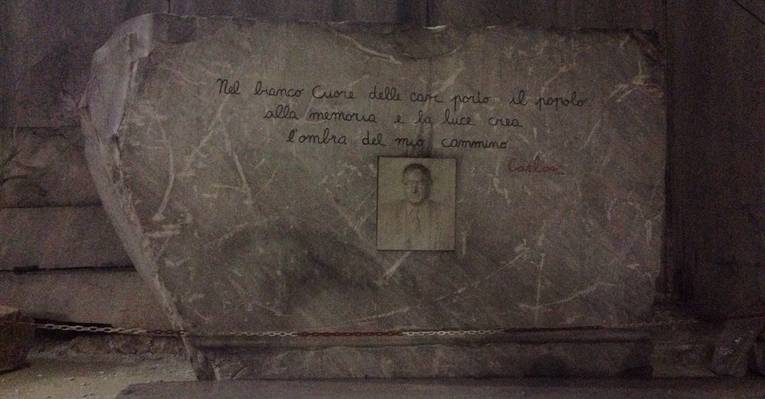 Nel bianco Cuore delle cave porto il popolo
alla memoria e la luce crea
l'ombra del mio cammino